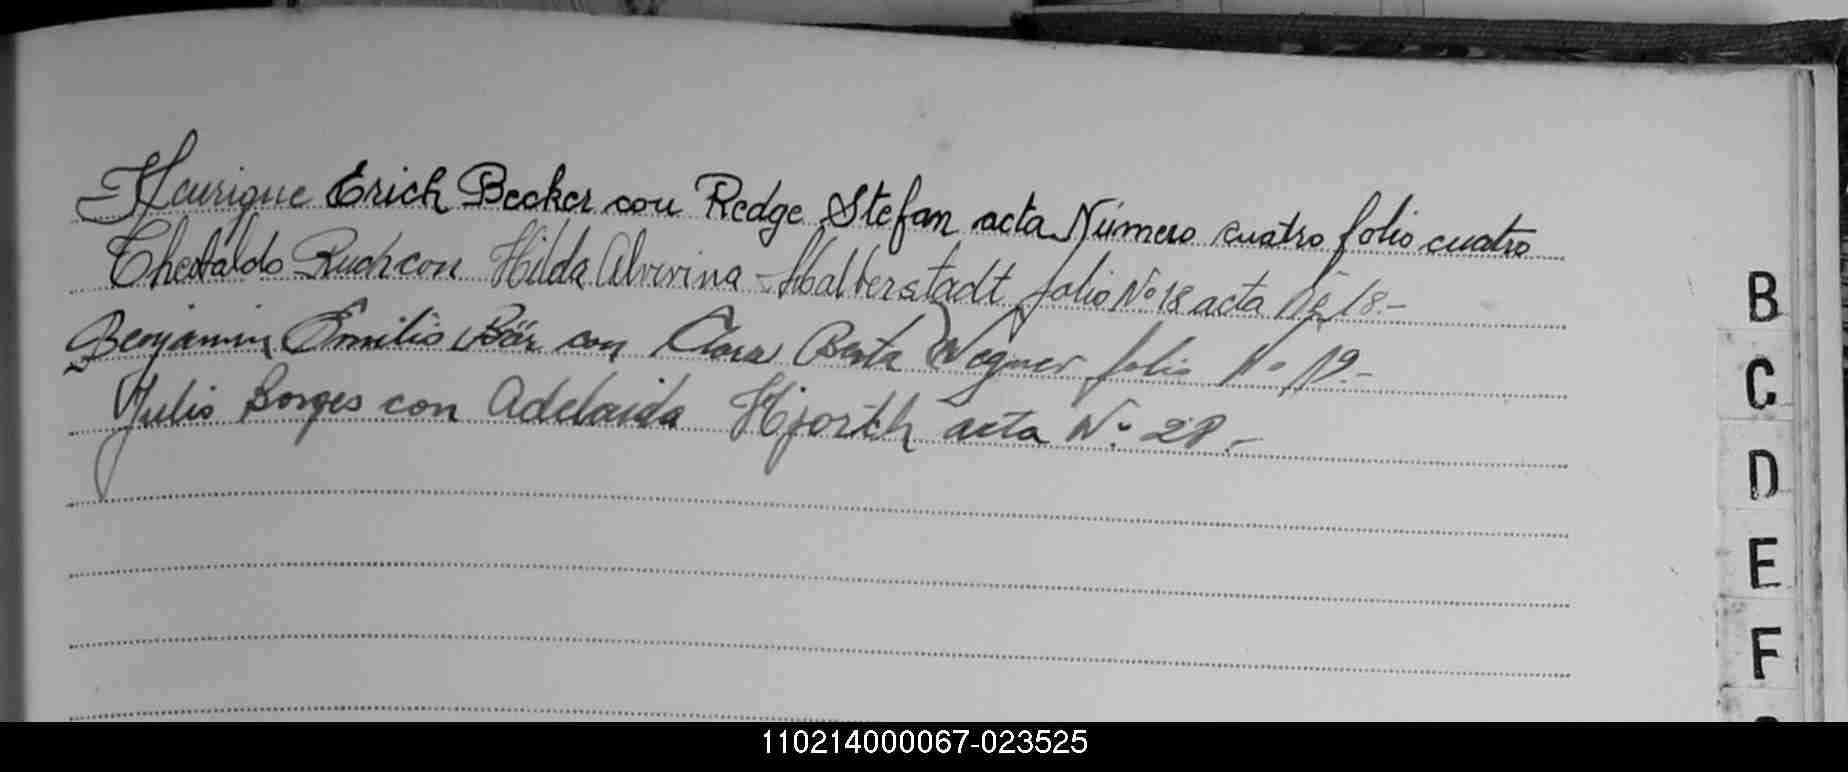 Henrique Erich Becker con Redge Stefan acta Número cuatro folio cuatro
Theobaldo Ruch con Hilda Alvirina Halberstadt folio Nº 18 acta Nº 18.-
Benjamin Emilio Bär con Clara Berta Wegner folio Nº 19.-
Julio Borges con Adelaida Hjorth acta Nº 28.-
B
C
D
E
F
110214000067-023525